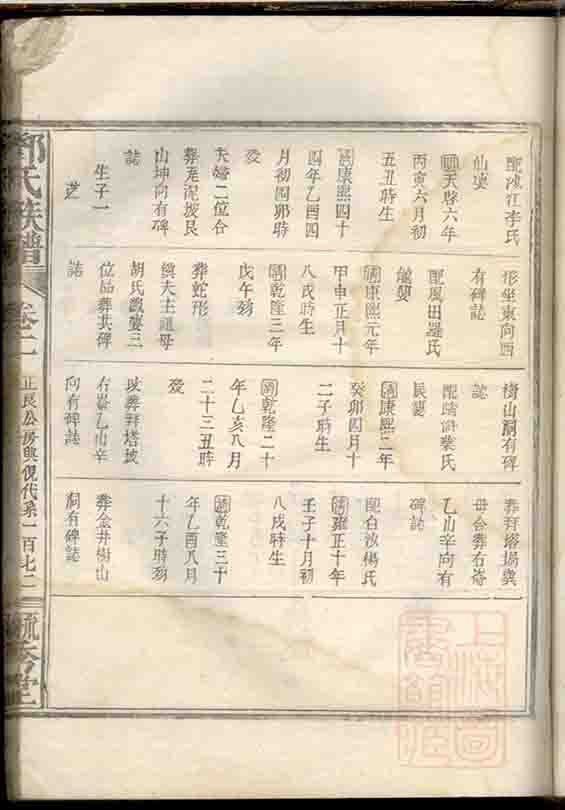 配沭江李氏
仙婆
明天啓六年
丙寅六月初
五丑時生
清康熙四十
四年乙酉四
月初四卯時
歿
夫婦二位合
葬庵泥坡艮
山坤向有碑
誌
生子一
芝
形坐東向西
有碑誌
配鳳田羅氏
毓嬰
清康熙元年
甲申正月十
八戌時生
清乾隆三年
戊午歿
葬蛇形
與夫主祖母
胡氏戲婆三
位品葬共碑
誌
樹山嗣有碑
誌
葉氏
清康熙二年
癸卯四月十
二子時生
清乾隆二十
年乙亥八月
二十三丑時
歿
葬拜塔坡
右崙乙山辛
向有碑誌
葬拜塔塲與
母合葬右崙
乙山辛向有
碑誌
配白沙楊氏
清雍正十年
壬子十月初
八戌時生
清乾隆三十
年乙酉八月
十六子時歿
葬金井樹山
嗣有碑誌
鄧氏族譜
卷二
正艮公房與倪代系一百七二
毓秀堂
上海圖
書館藏